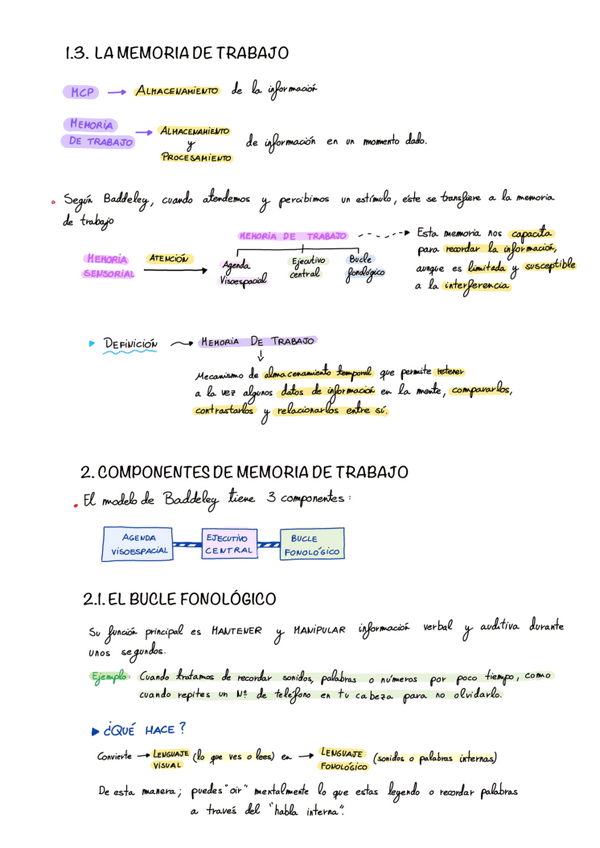 1.3. LA MEMORIA DE TRABAJO
MCP → ALMACENAMIENTO de la información
MEMORIA DE TRABAJO → ALMACENAMIENTO y PROCESAMIENTO de información en un momento dado.
Según Baddeley, cuando atendemos y percibimos un estímulo, éste se transfiere a la memoria
de trabajo
MEMORIA SENSORIAL
ATENCIÓN
MEMORIA DE TRABAJO
Agenda Visoespacial
Ejecutivo central
Bucle fonológico
Esta memoria nos capacita
para recordar la información,
aunque es limitada y susceptible
a la interferencia
DEFINICIÓN → MEMORIA DE TRABAJO
Mecanismo de almacenamiento temporal que permite retener
a la vez algunos datos de información en la mente, compararlos,
contrastarlos y relacionarlos entre sí.
2. COMPONENTES DE MEMORIA DE TRABAJO
El modelo de Baddeley tiene 3 componentes:
AGENDA VISOESPACIAL
EJECUTIVO CENTRAL
BUCLE FONOLÓGICO
2.1. EL BUCLE FONOLÓGICO
Su función principal es MANTENER y MANIPULAR información verbal y auditiva durante
unos segundos.
Ejemplo: Cuando tratamos de recordar sonidos, palabras o números por poco tiempo, como
cuando repites un Nº de teléfono en tu cabeza para no olvidarlo.
¿QUÉ HACE?
Convierte → LENGUAJE VISUAL (lo que ves o lees) en → LENGUAJE FONOLÓGICO (sonidos o palabras internas)
De esta manera; puedes "oir" mentalmente lo que estas leyendo o recordar palabras
a través del "habla interna".